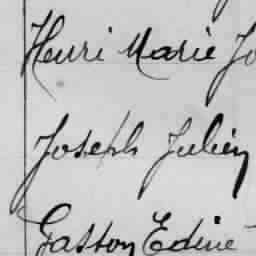 Henri Marie Jo
Joseph Julien
Gaston Edine